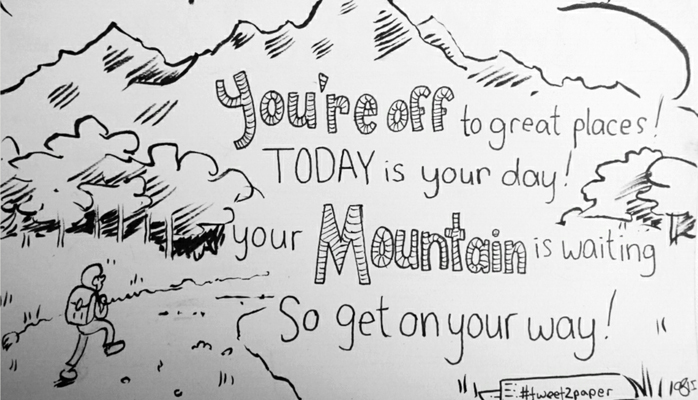 You're off to great places!
TODAY is your day!
your Mountain is waiting
So get on your way!
#tweet2paper